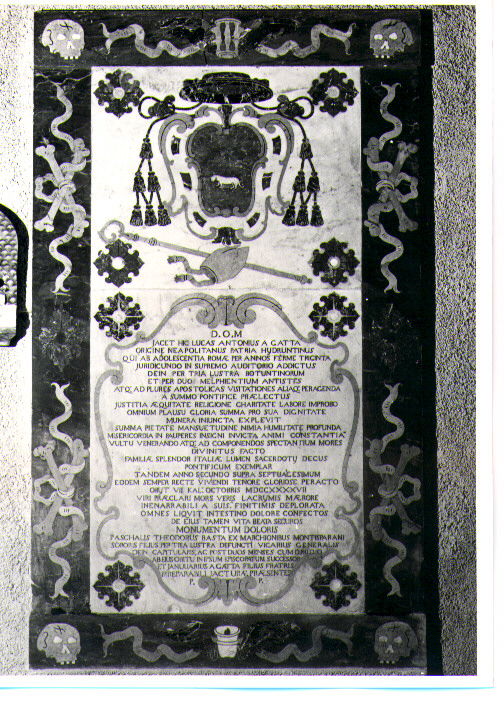 D.O.M
JACET HIC LUCAS ANTONIUS A GATTA
ORIGINE NEAPOLITANUS PATRIA HYDRUNTINUS
QUI AB ADOLESCENTIA ROMÆ PER ANNOS FERME TRIGINTA
JURIDICUNDO IN SUPREMO AUDITORIO ADDICTUS
DEIN PER TRIA LUSTRA BOTUNTINORUM
ET PER DUO MELPHIENTIUM ANTISTES
ATQ. AD PLURES APOSTOLICAS VISITATIONES ALIAQ. PERAGENDA
A SUMMO PONTIFICE PRÆLECTUS
JUSTITIA ÆQUITATE RELIGIONE CHARITATE LABORE IMPROBO
OMNIUM PLAUSU GLORIA SUMMA PRO SUA DIGNITATE
MUNERA INIUNCTA EXPLEVIT
SUMMA PIETATE MANSUETUDINE NIMIA HUMILITATE PROFUNDA
MISERICORDIA IN PAUPERES INSIGNI INVICTA ANIMI CONSTANTIA
VULTU VENERANDO ATQ. AD COMPONENDOS SPECTANTIUM MORES
DIVINITUS FACTO
FAMILIÆ SPLENDOR ITALIÆ LUMEN SACERDOTŪ DECUS
PONTIFICUM EXEMPLAR
TANDEM ANNO SECUNDO SUPRA SEPTUAGESIMUM
EODEM SEMPER RECTE VIVENDI TENORE GLORIOSE PERACTO
OBIJT VII KAL. OCTOBRIS MDCCXXXXVII
VIRI PRÆCLARI MORS VERIS LACRUMIS MÆRORE
INENARRABILI A SUIS, FINITIMIS DEPLORATA
OMNES LIQVIT INTESTINO DOLORE CONFECTOS
DE EIUS TAMEN VITA BEATA SECUROS
MONUMENTUM DOLORIS
PASCHALIS THEODORUS BASTA EX MARCHIONIBUS MONTISPARANI
SORORIS FILIUS PER TRIA LUSTRA DIFUNCTI VICARIUS GENERALIS
DEIN CAPITULARIS, AC POST DUOS MENSES CUM DIMIDIO
AB EIUS OBITU IN IPSUM EPISCOPATUM SUCCESSOR
ET JANUARIUS A GATTA FILIUS FRATRIS
IRREPARABILI JACTURÆ PRÆSENTES
P. P.